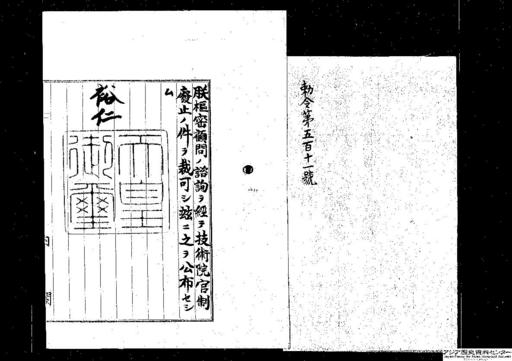 勅令第五百十一號
朕樞密顧問ノ諮詢ヲ經テ技術院官制
廢止ノ件ヲ裁可シ玆ニ之ヲ公布セシ
ム
裕仁
天皇
御璽
内閣
アジア歴史資料センター